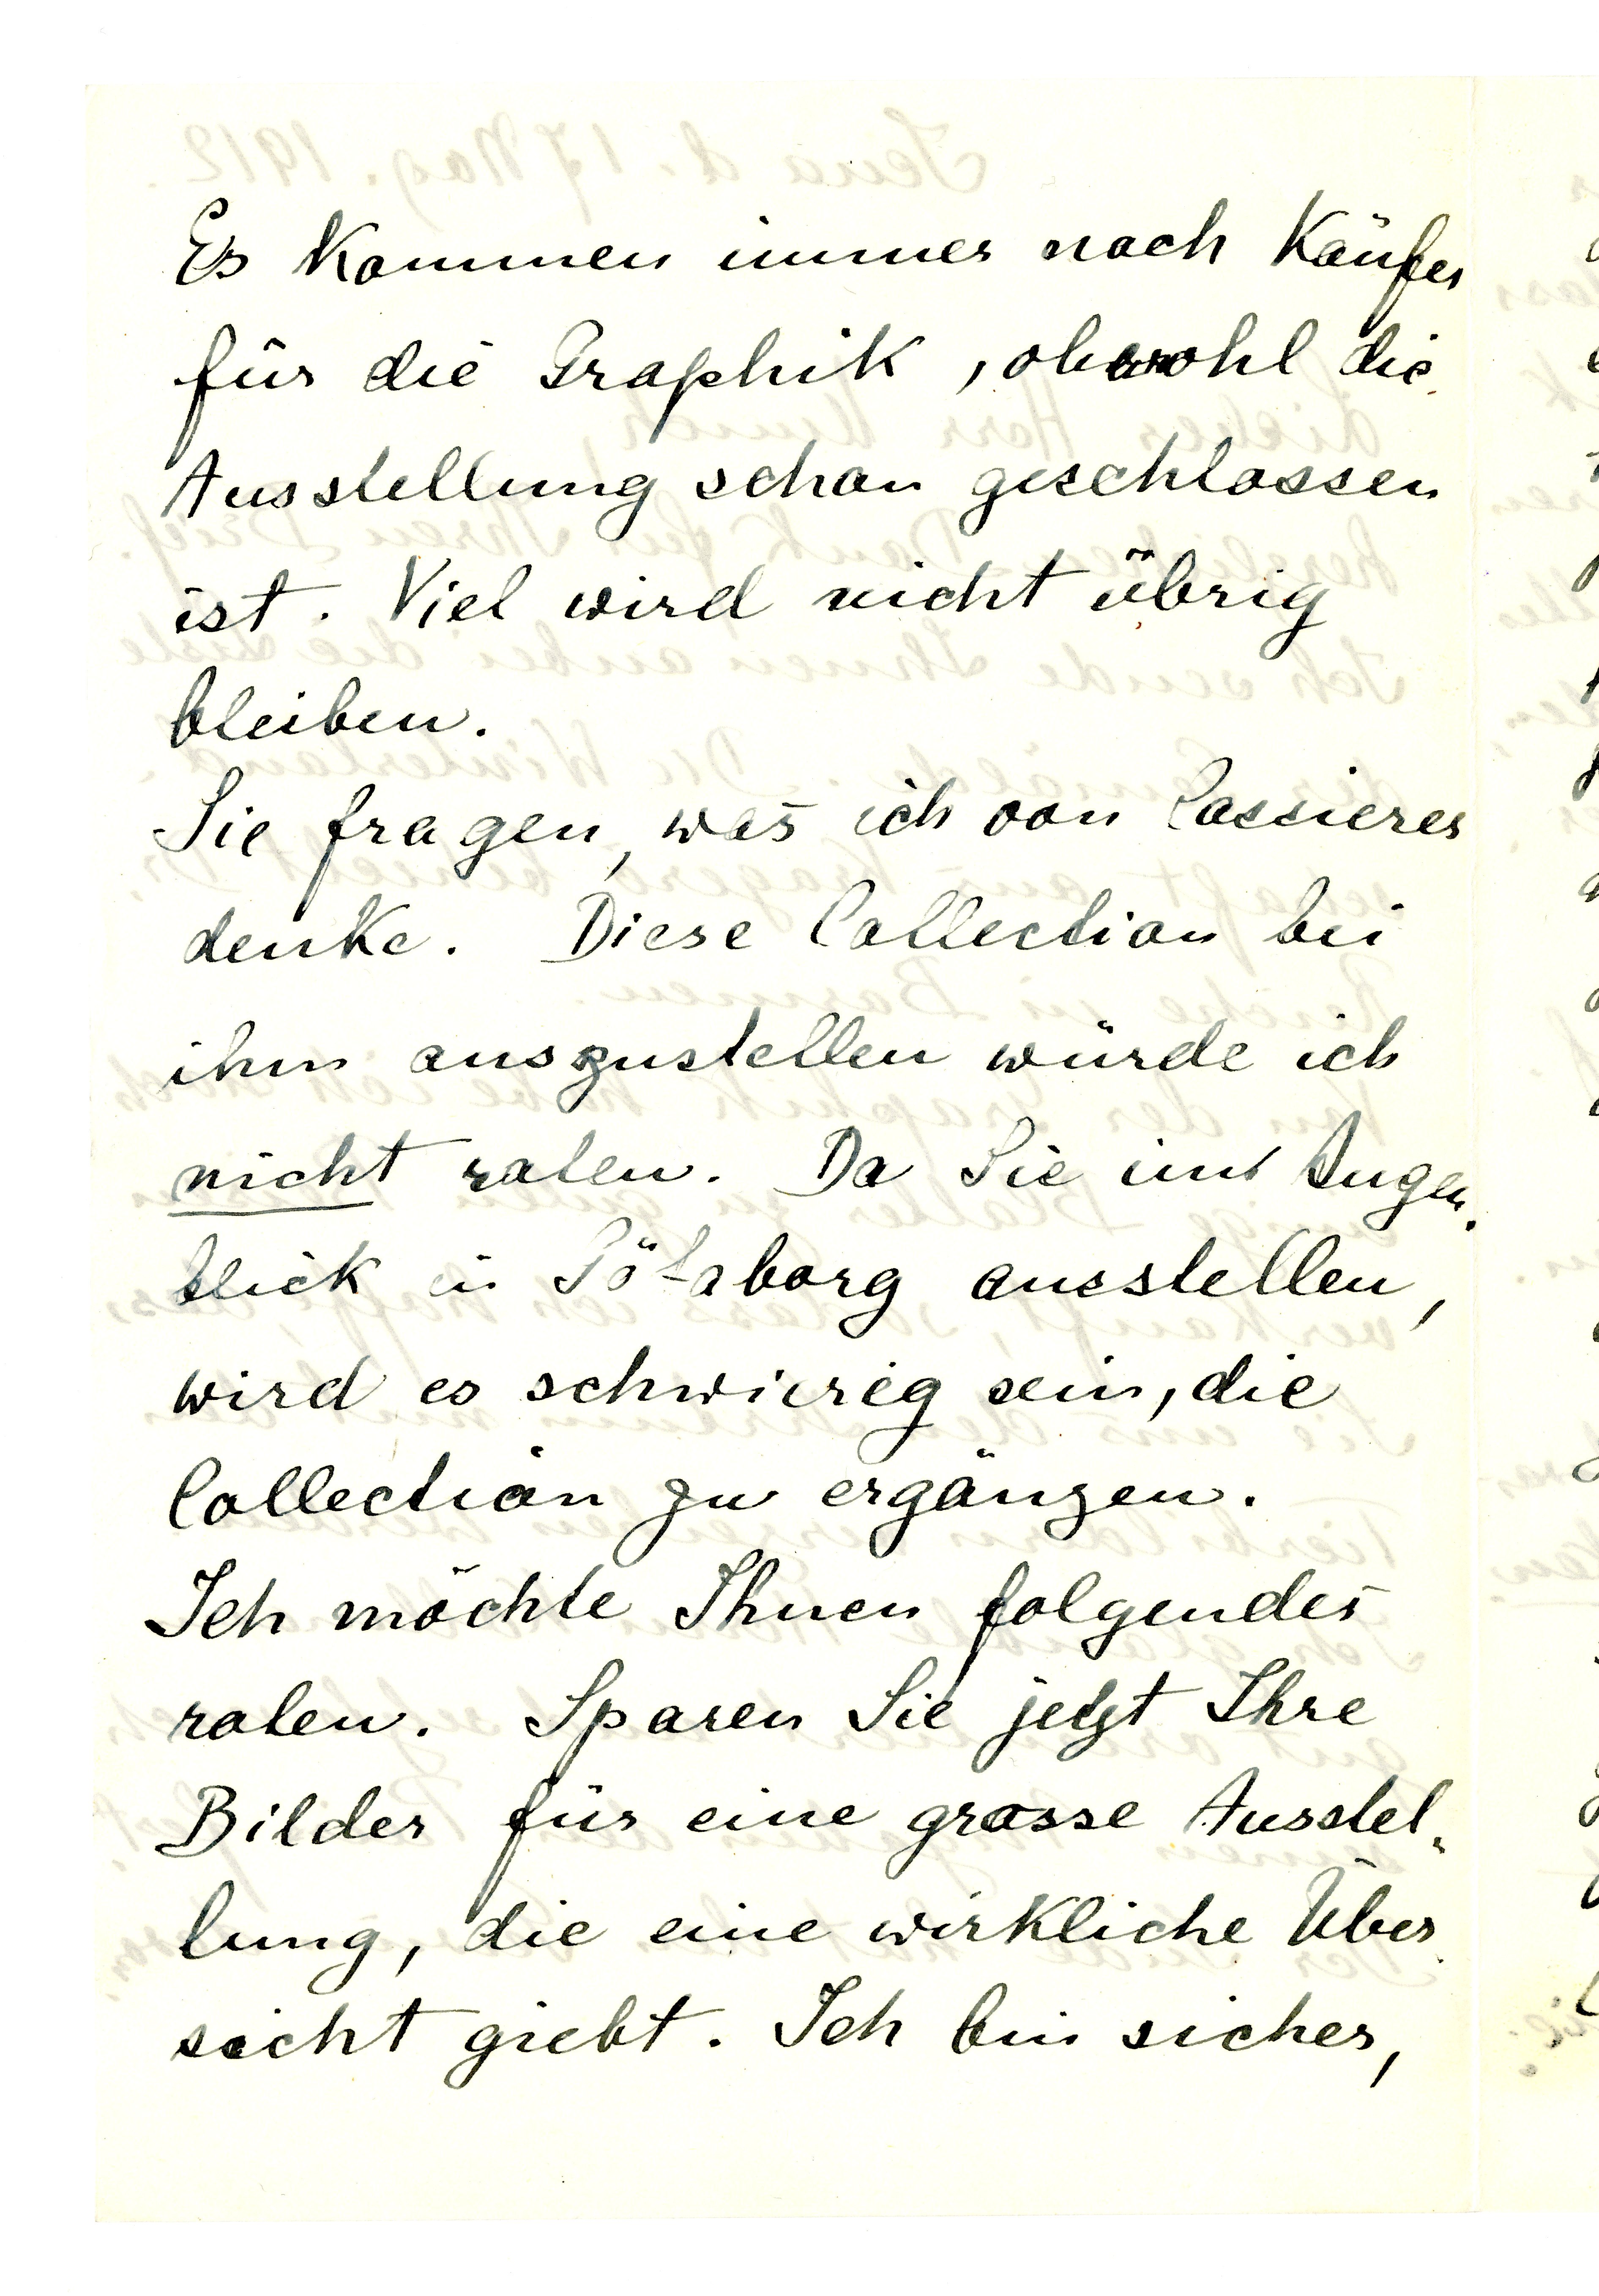 Es kommen immer noch Käufer
für die Graphik, obwohl die
Ausstellung schon geschlossen
ist. Viel wird nicht übrig
bleiben.
Sie fragen, was ich von Cassierer
denke. Diese Collection bei
ihm auszustellen würde ich
nicht raten. Da Sie im Augen-
blick in Götaborg ausstellen,
wird es schwierig sein, die
Collection zu ergänzen.
Ich möchte Ihnen folgendes
raten. Sparen Sie jetzt Ihre
Bilder für eine grosse Ausstel-
lung, die eine wirkliche Über
sicht giebt. Ich bin sicher,